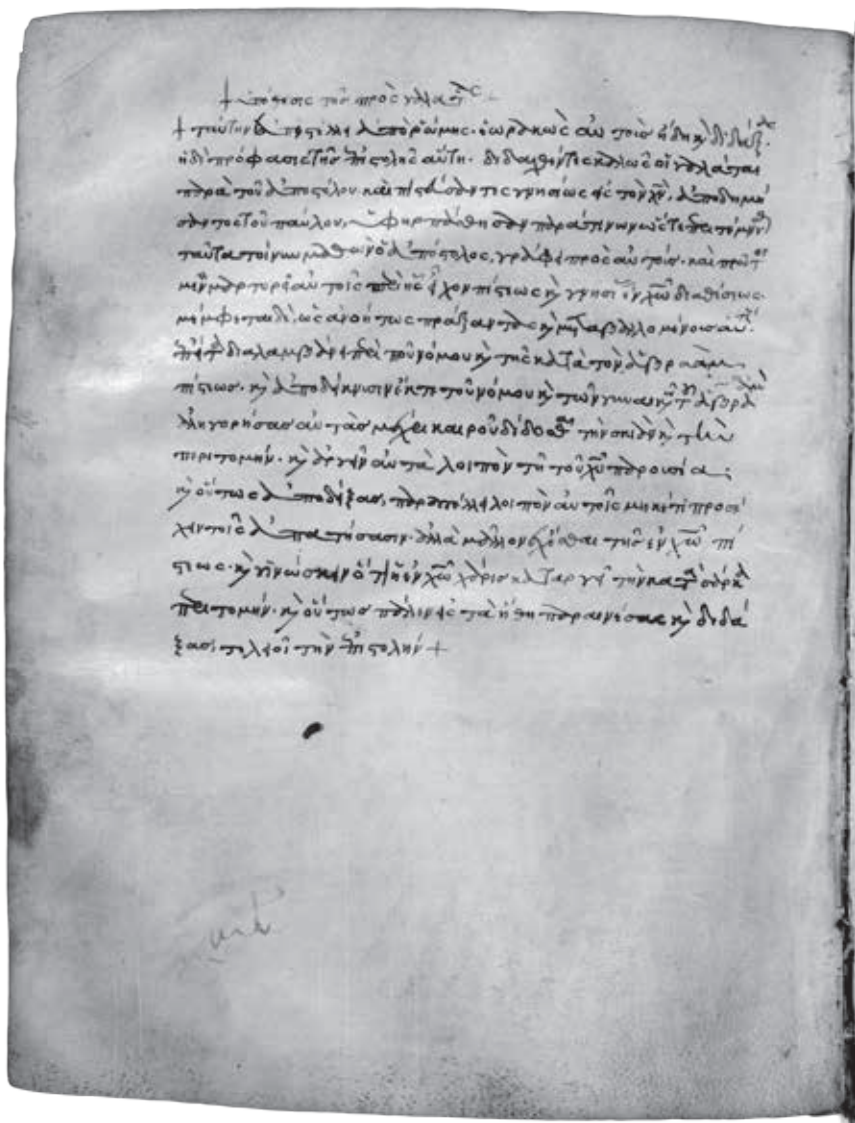 + ὑπόθεσις τῆς πρὸς γαλάτ(ας) +
+ ταύτην ἐπιστέλλει ἀπὸ ῥώμης· ἑωρακὼς αὐτοὺς ἤδη κ(αὶ) διδάξας·
ἡ δὲ πρόφασις τῆς ἐπιστολῆς αὕτη· διδαχθέντες καλῶς οἱ γαλάται
παρὰ τοῦ ἀποστόλου· καὶ πιστεύσαντες γνησίως εἰς τὸν χν, ἀποδημή
σαντος τοῦ παύλου, ὑφηρπάσθησαν παρά τινων ὥστε περιτμηθ
ταῦτα τοίνυν μαθὼν ὁ ἀπόστολος, γράφει πρὸς αὐτούς· καὶ πρῶτον
μὲν μαρτυρεῖ αὐτοῖς περὶ ἧς εἶχον πίστεως κ(αὶ) γνησί ἐν χω διαθέσεως·
μέμφεται δὲ, ὡς ἀνοήτως πράξαντας κ(αὶ) μεταβαλλομένους αὐτ
ἔπειτα διαλαμβάνει περὶ τοῦ νόμου κ(αὶ) τῆς κατὰ τὸν ἀβραὰμ
πίστεως· κ(αὶ) ἀποδείκνυσιν ἔκ τε τοῦ νόμου κ(αὶ) τῶν γυναικῶν τοῦ ἀβραὰμ
ἀλληγορήσας αὐτὰς μέχρι καιροῦ δίδοσθαι τὴν σκιὰν κ(αὶ) τὴν
περιτομήν· κ(αὶ) ἀργεῖν αὐτὰ λοιπὸν τῆ τοῦ χυ παρουσία·
κ(αὶ) οὕτως ἀποδείξας, παραγγέλλει λοιπὸν αὐτοῖς μηκέτι προσέ
χειν τοῖς ἀπατήσασιν· ἀλλὰ μᾶλλον ἔχεσθαι τῆς ἐν χω πί
στεως· κ(αὶ) γινώσκειν ὅτι ἡ ἐν χω χάρις καταργεῖ τὴν κατὰ σάρκα
περιτομήν· κ(αὶ) οὕτως πάλιν εἰς τὰ ἤθη παραινέσας κ(αὶ) διδά
ξας, τελειοῖ τὴν ἐπιστολήν +